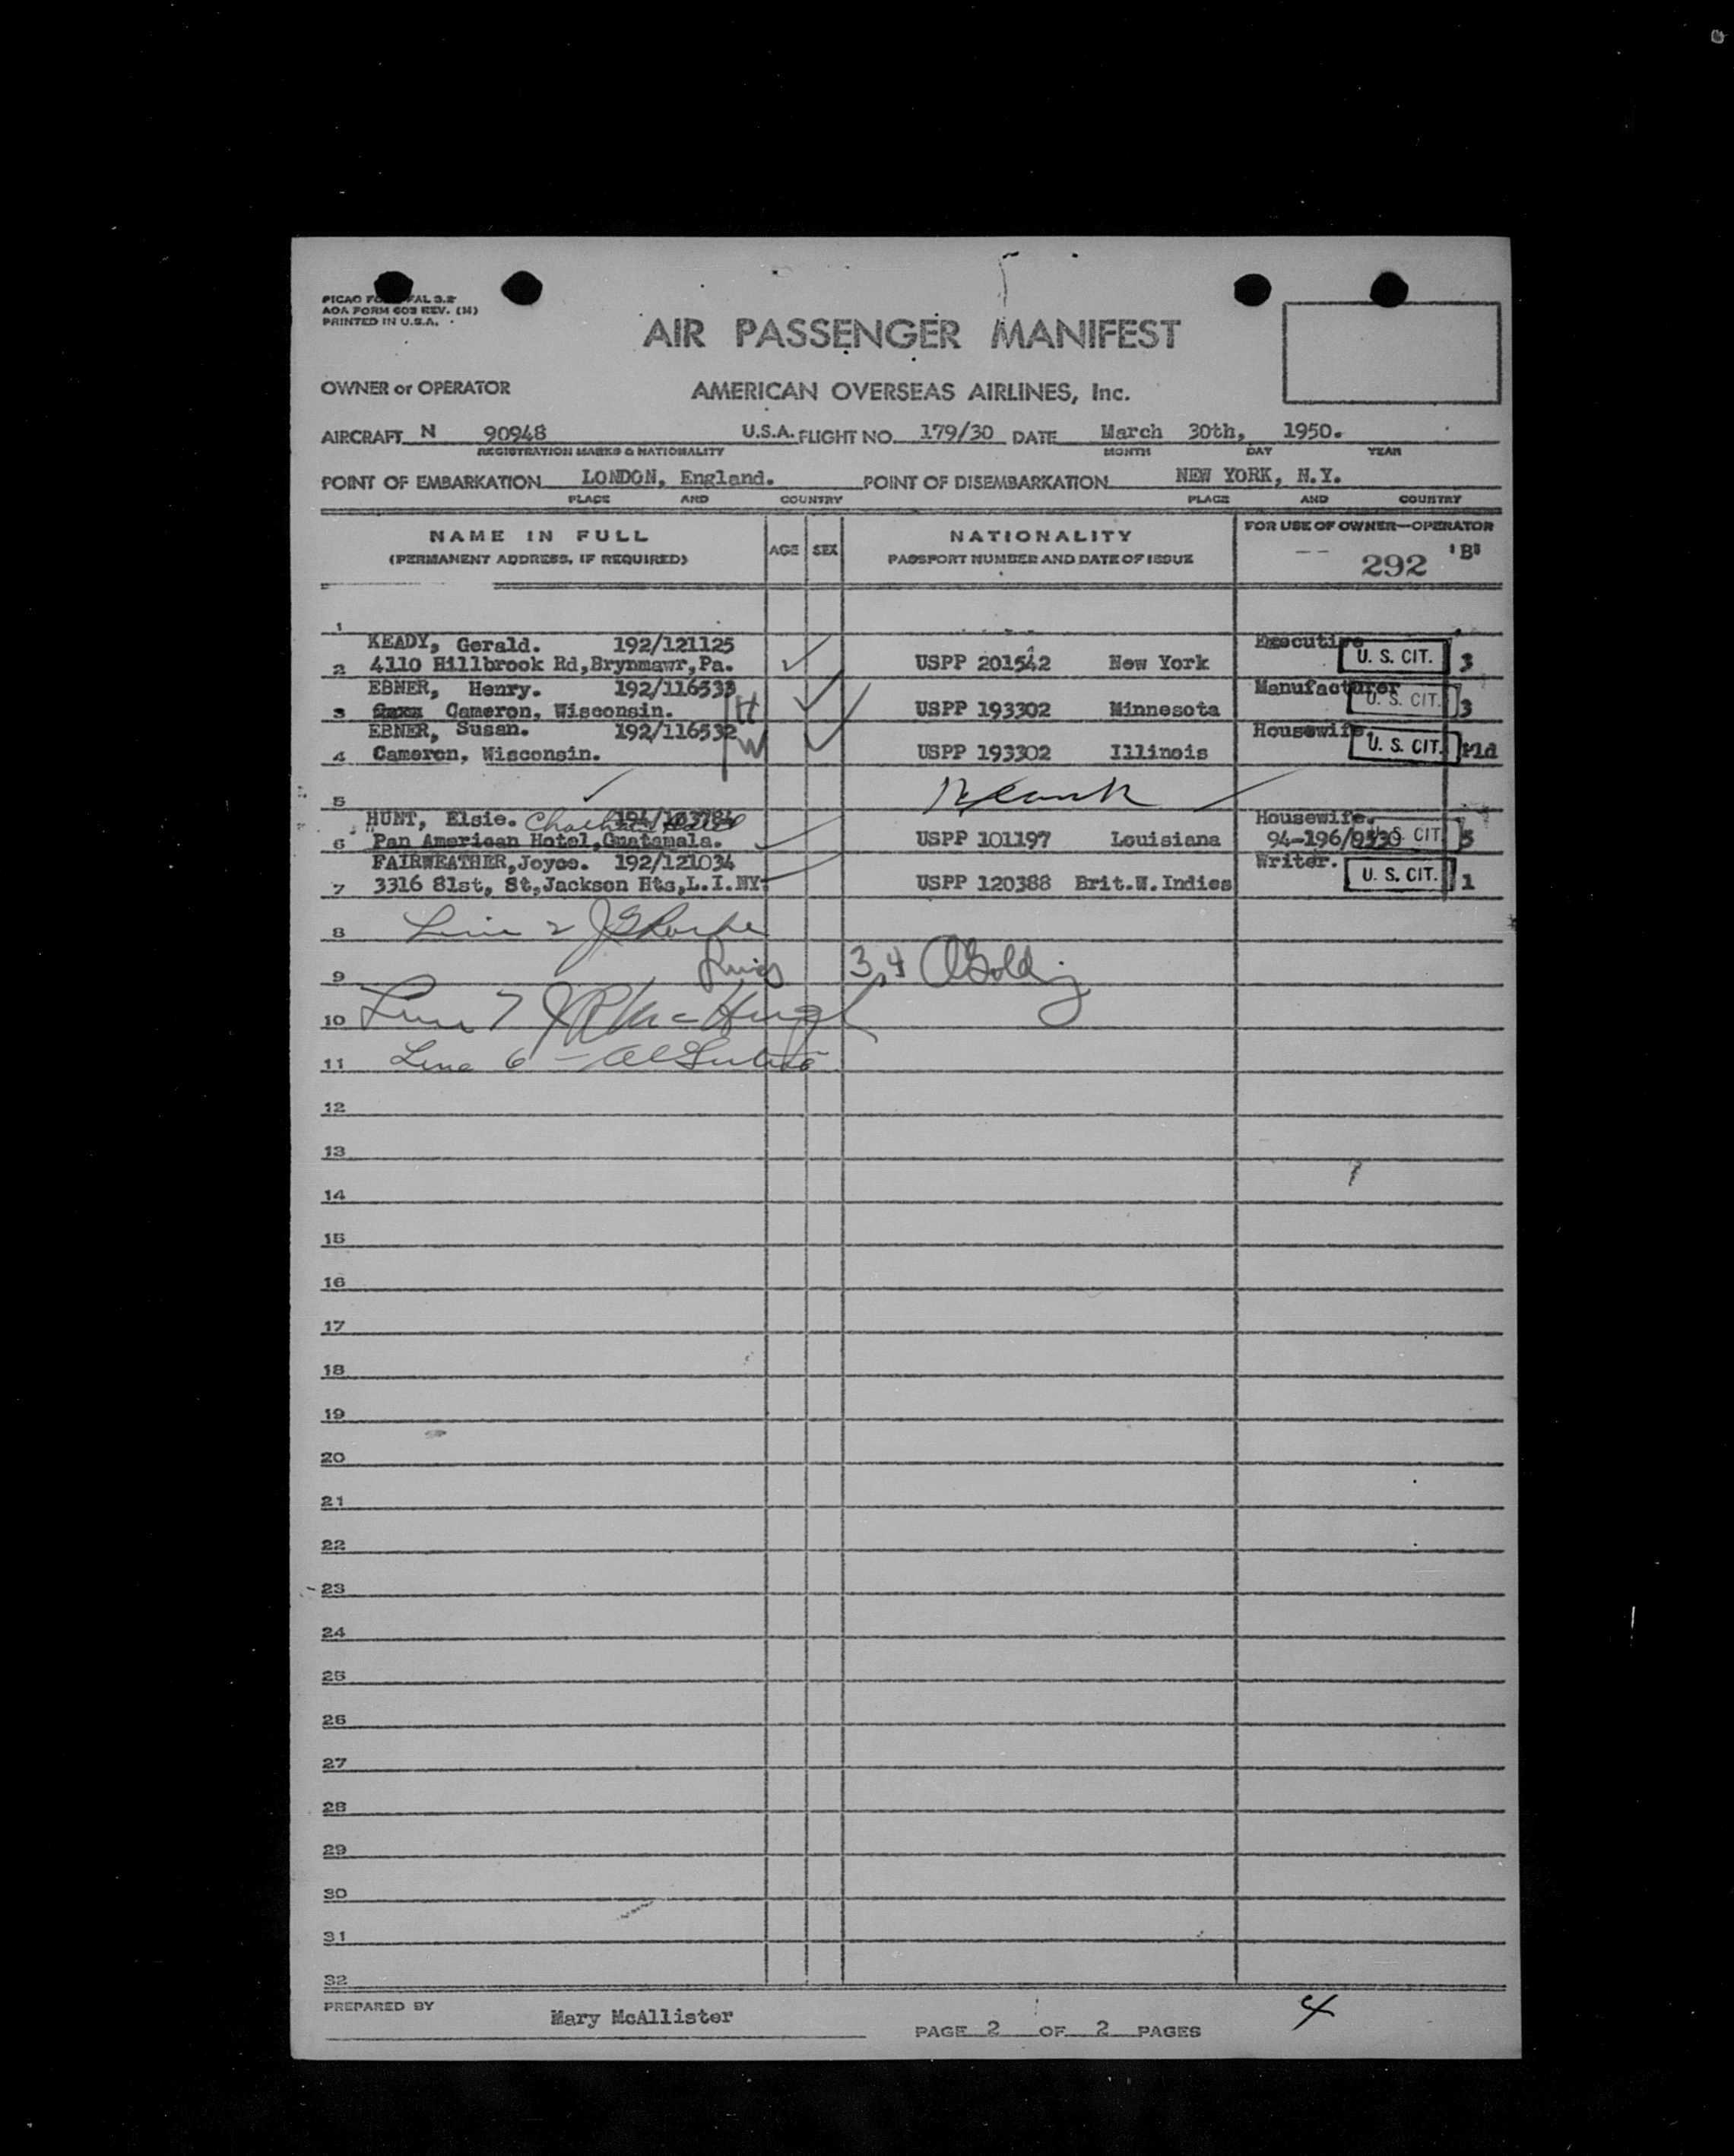 PICAO FO   FAL 3.2
AOA FORM 603 REV. (M)
PRINTED IN U.S.A.
AIR PASSENGER MANIFEST
OWNER or OPERATOR AMERICAN OVERSEAS AIRLINES, Inc.
AIRCRAFT N 90948 U.S.A. FLIGHT NO. 179/30 DATE March 30th, 1950.
REGISTRATION MARKS & NATIONALITY MONTH DAY YEAR
POINT OF EMBARKATION LONDON, England. POINT OF DISEMBARKATION NEW YORK, N.Y.
PLACE AND COUNTRY PLACE AND COUNTRY
NAME IN FULL AGE SEX NATIONALITY FOR USE OF OWNER—OPERATOR
(PERMANENT ADDRESS, IF REQUIRED) PASSPORT NUMBER AND DATE OF ISSUE -- 292 'B'
1
KEADY, Gerald. 192/121125 Executive
2 4110 Hillbrook Rd,Brynmawr,Pa. USPP 201542 New York U. S. CIT. 3
EBNER, Henry. 192/116533 Manufacturer
3 Cameron, Wisconsin. H USPP 193302 Minnesota U. S. CIT. 3
EBNER, Susan. 192/116532 Housewife.
4 Cameron, Wisconsin. W USPP 193302 Illinois U. S. CIT. Fld
5
HUNT, Elsie. 194/103784 Housewife.
6 Pan American Hotel,Guatamala. USPP 101197 Louisiana 94-196/ U. S. CIT. 5
FAIRWEATHER,Joyce. 192/121034 Writer.
7 3316 81st, St,Jackson Hts,L.I.NY. USPP 120388 Brit.W.Indies U. S. CIT. 1
8 Line 2
9 Lines 3,4
10 Line 7
11 Line 6 -
12
13
14
15
16
17
18
19
20
21
22
23
24
25
26
27
28
29
30
31
32
PREPARED BY Mary McAllister PAGE 2 OF 2 PAGES 4